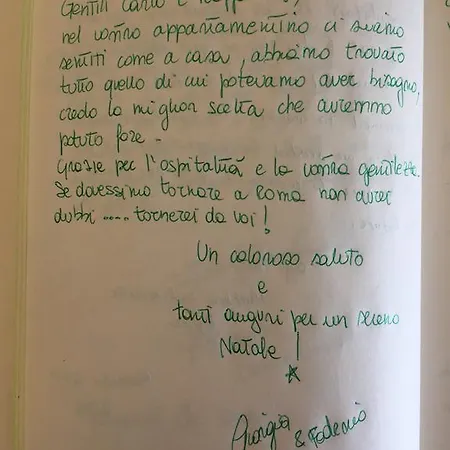 Gentili Carlo e
nel vostro appartamentino ci siamo
sentiti come a casa, abbiamo trovato
tutto quello di cui potevamo aver bisogno,
credo la miglior scelta che avremmo
potuto fare -
Grazie per l'ospitalità e la vostra gentilezza.
Se dovessimo tornare a Roma non avrei
dubbi ..... tornerei da voi!
Un caloroso saluto
e
tanti auguri per un sereno
Natale!
Giorgia
& Federico